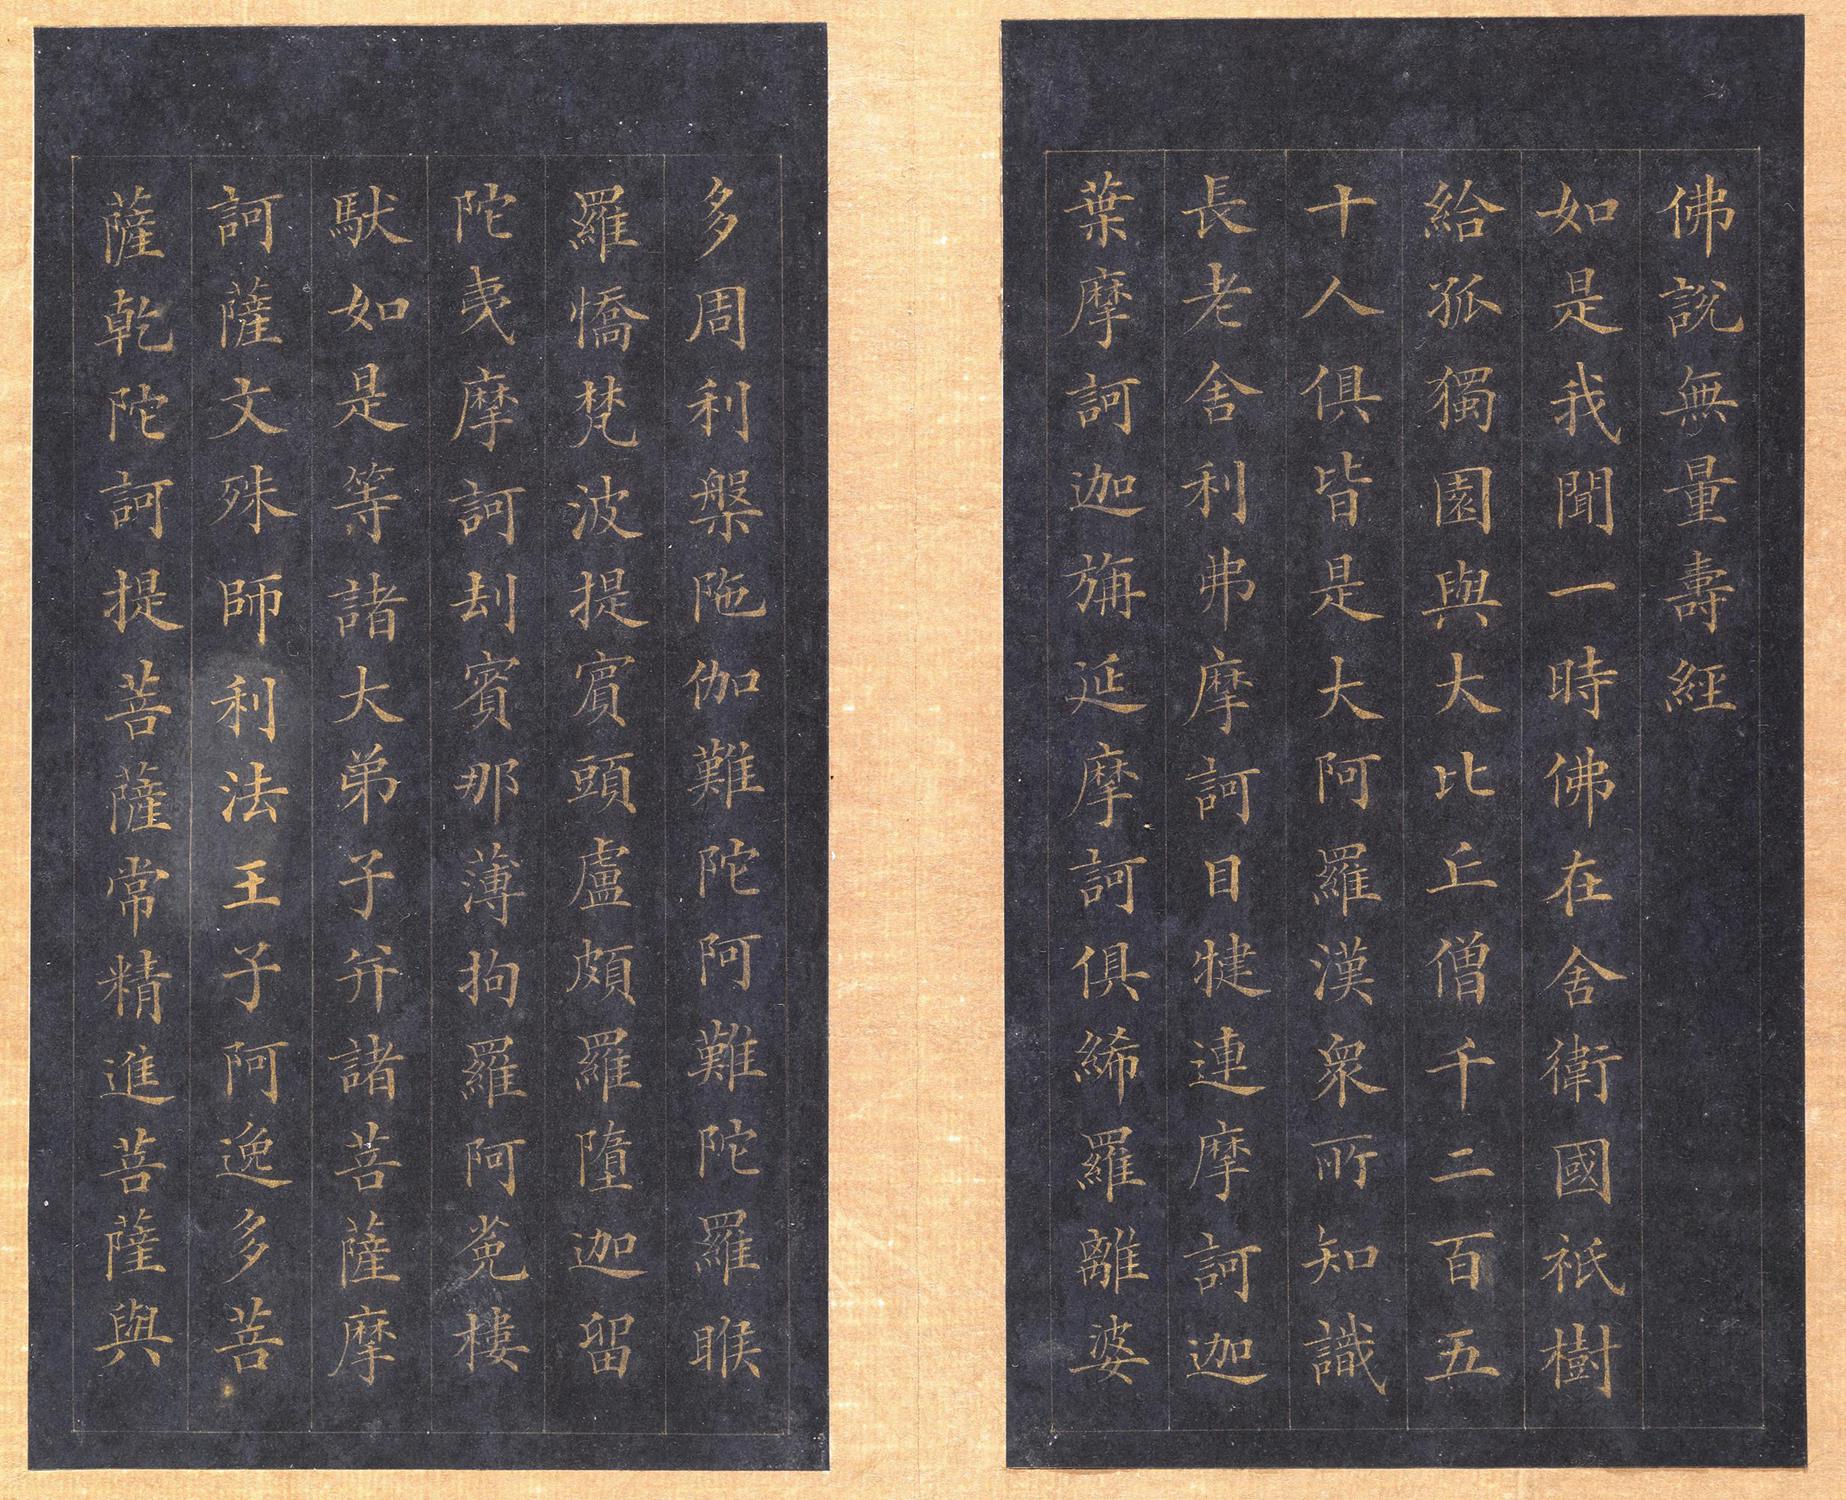 佛說無量壽經
如是我聞一時佛在舍衛國祇樹
給孤獨園與大比丘僧千二百五
十人俱皆是大阿羅漢衆所知識
長老舍利弗摩訶目犍連摩訶迦
葉摩訶迦旃延摩訶俱絺羅離婆
多周利槃陁伽難陀阿難陀羅睺
羅憍梵波提賓頭盧頗羅墮迦留
陀夷摩訶刦賓那薄拘羅阿㝹樓
馱如是等諸大弟子并諸菩薩摩
訶薩文殊師利法王子阿逸多菩
薩乾陀訶提菩薩常精進菩薩與